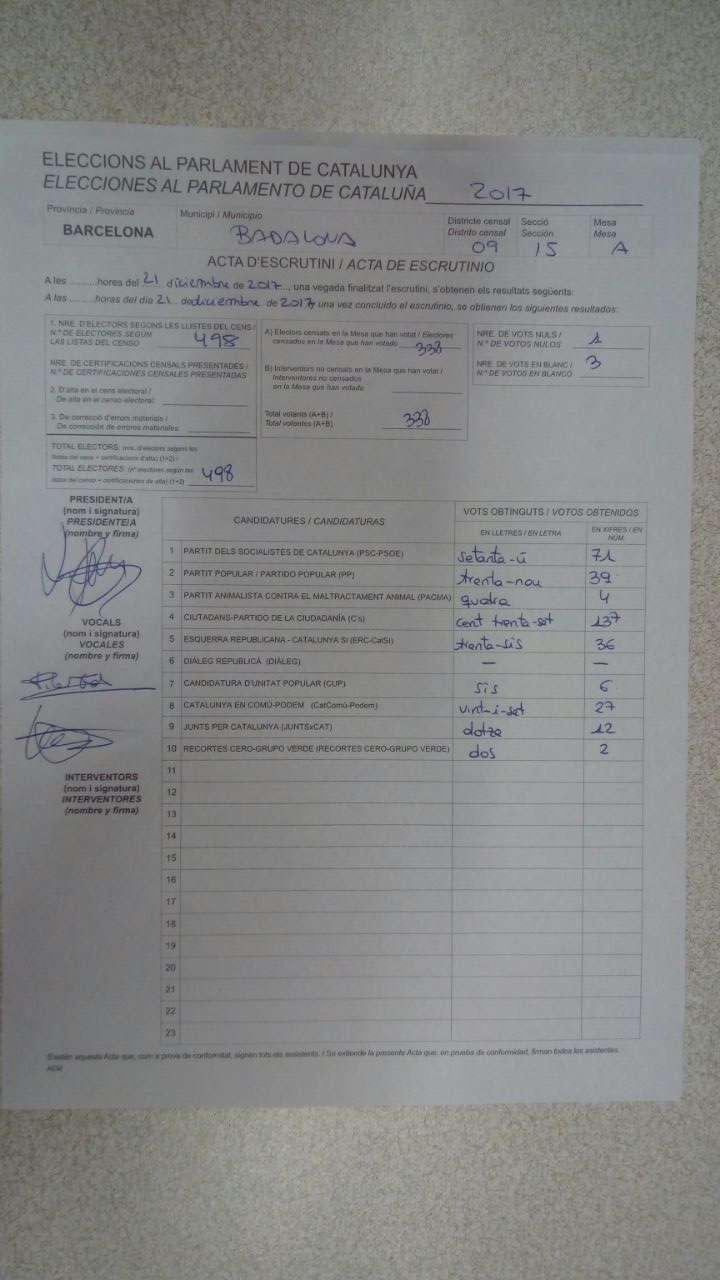 ELECCIONS AL PARLAMENT DE CATALUNYA
ELECCIONES AL PARLAMENTO DE CATALUÑA 2017
Província / Provincia Municipi / Municipio Districte censal Secció Mesa
Distrito censal Sección Mesa
BARCELONA BADALONA 09 15 A
ACTA D'ESCRUTINI / ACTA DE ESCRUTINIO
A les .........hores del 21 diciembre de 2017..., una vegada finalitzat l'escrutini, s'obtenen els resultats següents:
A las .........horas del día 21 de diciembre de 2017, una vez concluido el escrutinio, se obtienen los siguientes resultados:
1. NRE. D'ELECTORS SEGONS LES LLISTES DEL CENS /
N.º DE ELECTORES SEGÚN
LAS LISTAS DEL CENSO 498
NRE. DE CERTIFICACIONS CENSALS PRESENTADES /
N.º DE CERTIFICACIONES CENSALES PRESENTADAS
2. D'alta en el cens electoral /
De alta en el censo electoral:
3. De correcció d'errors materials /
De corrección de errores materiales:
TOTAL ELECTORS: (nre. d'electors segons les
llistes del cens + certificacions d'alta) (1+2) /
TOTAL ELECTORES: (nº electores según las
listas del censo + certificaciones de alta) (1+2) 498
A) Electors censats en la Mesa que han votat / Electores
censados en la Mesa que han votado 338
B) Interventors no censats en la Mesa que han votat /
Interventores no censados
en la Mesa que han votado
Total votants (A+B) /
Total votantes (A+B) 338
NRE. DE VOTS NULS /
N.º DE VOTOS NULOS 1
NRE. DE VOTS EN BLANC /
N.º DE VOTOS EN BLANCO 3
PRESIDENT/A
(nom i signatura)
PRESIDENTE/A
(nombre y firma)
VOCALS
(nom i signatura)
VOCALES
(nombre y firma)
INTERVENTORS
(nom i signatura)
INTERVENTORES
(nombre y firma)
CANDIDATURES / CANDIDATURAS VOTS OBTINGUTS / VOTOS OBTENIDOS
EN LLETRES / EN LETRA EN XIFRES / EN NÚM.
1 PARTIT DELS SOCIALISTES DE CATALUNYA (PSC-PSOE) setanta-ú 71
2 PARTIT POPULAR / PARTIDO POPULAR (PP) trenta-nou 39
3 PARTIT ANIMALISTA CONTRA EL MALTRACTAMENT ANIMAL (PACMA) quatra 4
4 CIUTADANS-PARTIDO DE LA CIUDADANÍA (C's) cent trenta-set 137
5 ESQUERRA REPUBLICANA - CATALUNYA SI (ERC-CatSí) trenta-sis 36
6 DIÀLEG REPUBLICÀ (DIÀLEG) — —
7 CANDIDATURA D'UNITAT POPULAR (CUP) sis 6
8 CATALUNYA EN COMÚ-PODEM (CatComú-Podem) vint-i-set 27
9 JUNTS PER CATALUNYA (JUNTSxCAT) dotze 12
10 RECORTES CERO-GRUPO VERDE (RECORTES CERO-GRUPO VERDE) dos 2
11
12
13
14
15
16
17
18
19
20
21
22
23
S'estén aquesta Acta que, com a prova de conformitat, signen tots els assistents. / Se extiende la presente Acta que, en prueba de conformidad, firman todos los asistentes.